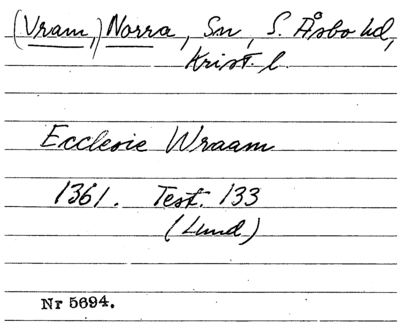 (Vram,) Norra, Sn, S. Åsbo hd,
Krist. l.
Ecclesie Wraam
1361. Test. 133
(Lund)
Nr 5694.